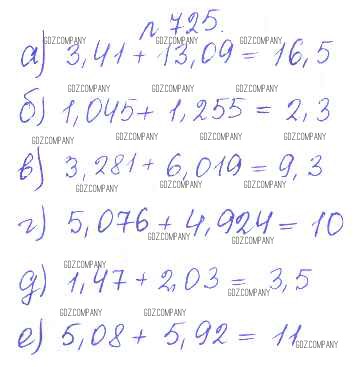 n 725.
а) 3,41 + 13,09 = 16,5
GDZCOMPANY GDZCOMPANY GDZCOMPANY
б) 1,045 + 1,255 = 2,3
GDZCOMPANY GDZCOMPANY GDZCOMPANY
GDZCOMPANY GDZCOMPANY GDZCOMPANY GDZCOMPANY
в) 3,281 + 6,019 = 9,3
GDZCOMPANY GDZCOMPANY GDZCOMPANY
г) 5,076 + 4,924 = 10
GDZCOMPANY GDZCOMPANY
GDZCOMPANY
д) 1,47 + 2,03 = 3,5
GDZCOMPANY GDZCOMPANY GDZCOMPANY
е) 5,08 + 5,92 = 11
GDZCOMPANY